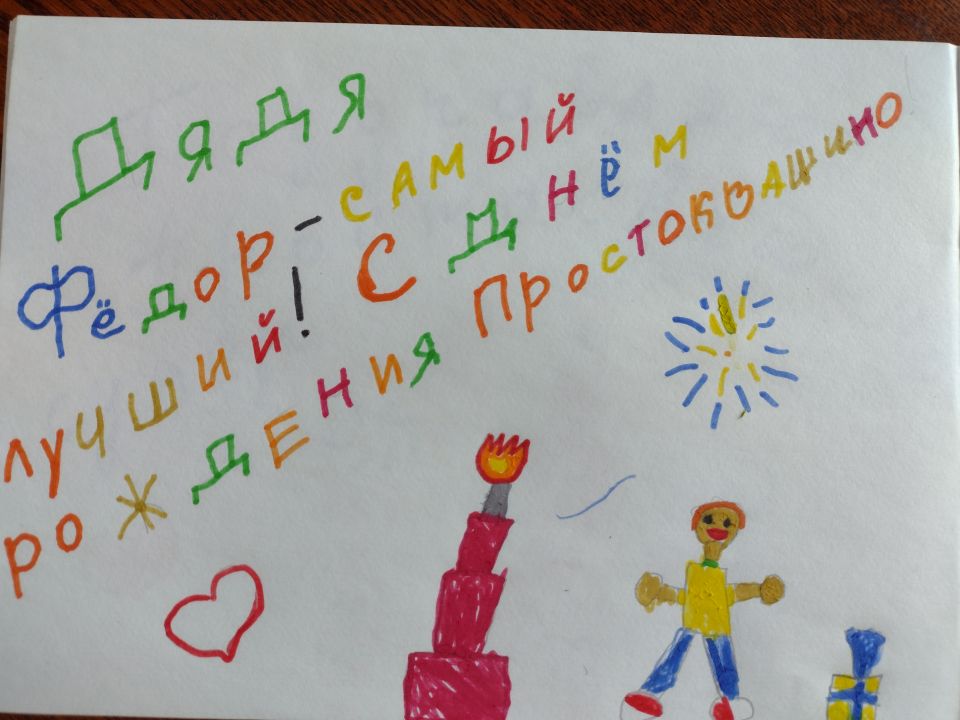 Дядя
Фёдор - самый
лучший! С Днём
рождЕния Простоквашино